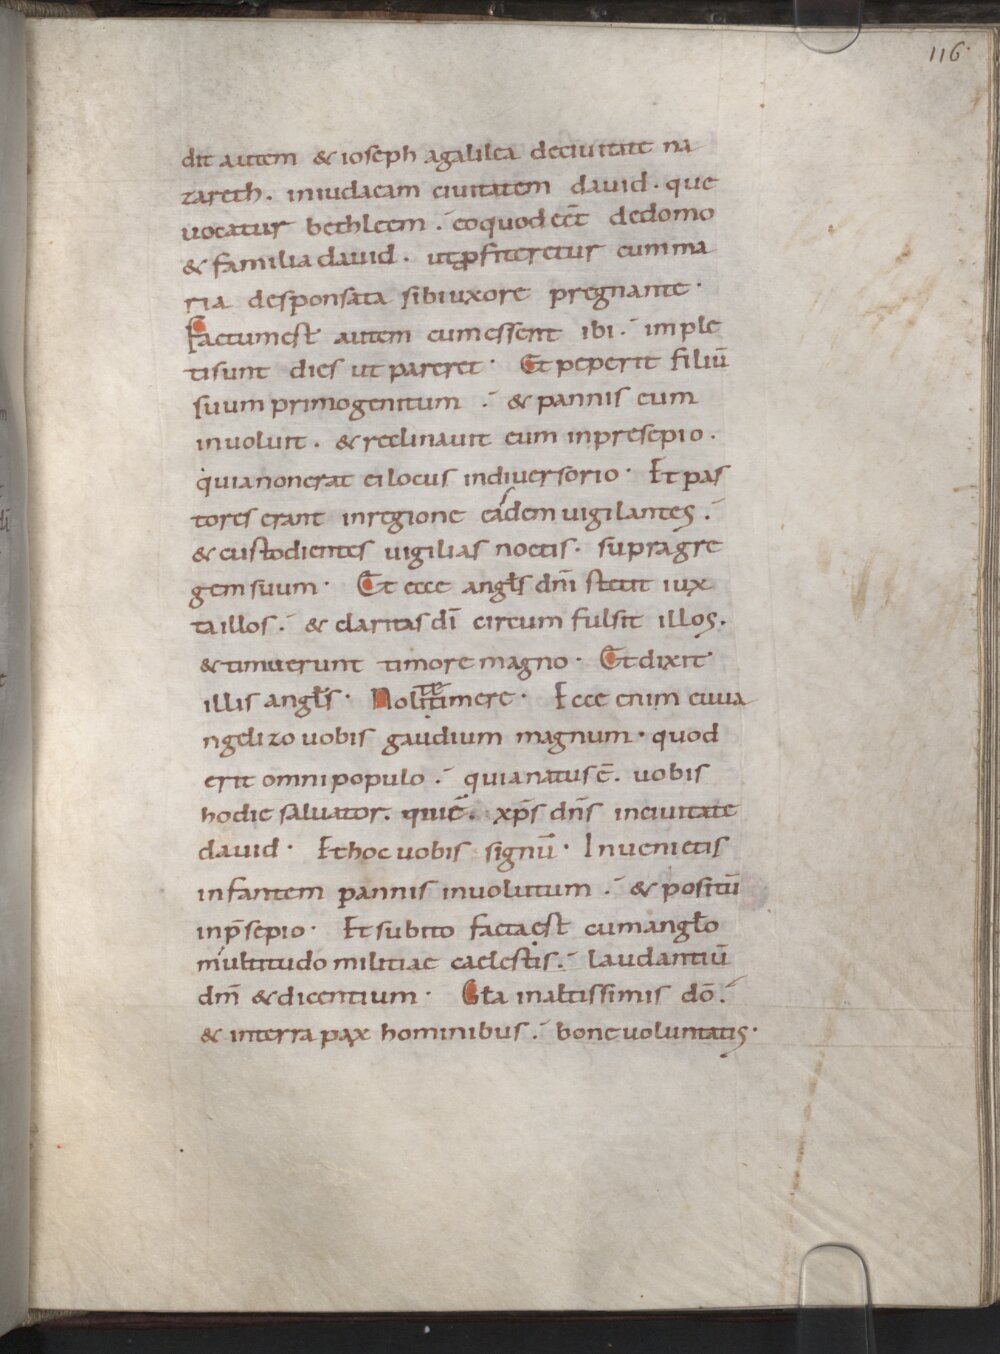 116
dit autem & ioseph agalilea deciuitate na
zareth. iniudaeam ciuitatem dauid. que
uocatur bethleem. eoquod eet̄ dedomo
& familia dauid. utꝓfiteretur cumma
ria desponsata sibiuxore pregnante.
Factumest autem cumessent ibi. imple
tisunt dies ut pareret. Et peperit filiū
suum primogenitum. & pannis eum
inuoluit. & reclinauit eum inpresepio.
quianonerat ei locus indiuersorio. Et pas
tores erant inregione eadem uigilantes.
& custodientes uigilias noctis. supragre
gem suum. Et ecce angl̄s dnī stetit iux
ta illos. & claritas dī circum fulsit illos.
& timuerunt timore magno. Et dixit
illis angl̄s. Nolite timere. Ecce enim euua
ngelizo uobis gaudium magnum. quod
erit omni populo. quia natus ē. uobis
hodie saluator. qui ē. xp̄s dn̄s inciuitate
dauid. Et hoc uobis signū. Inuenietis
infantem pannis inuolutum. & positū
inp̄sepio. Et subito facta est cumangl̄o
multitudo militiae caelestis. laudantiū
dm̄ & dicentium. Gl̄a inaltissimis dō.
& interra pax hominibus. bone uoluntatis.